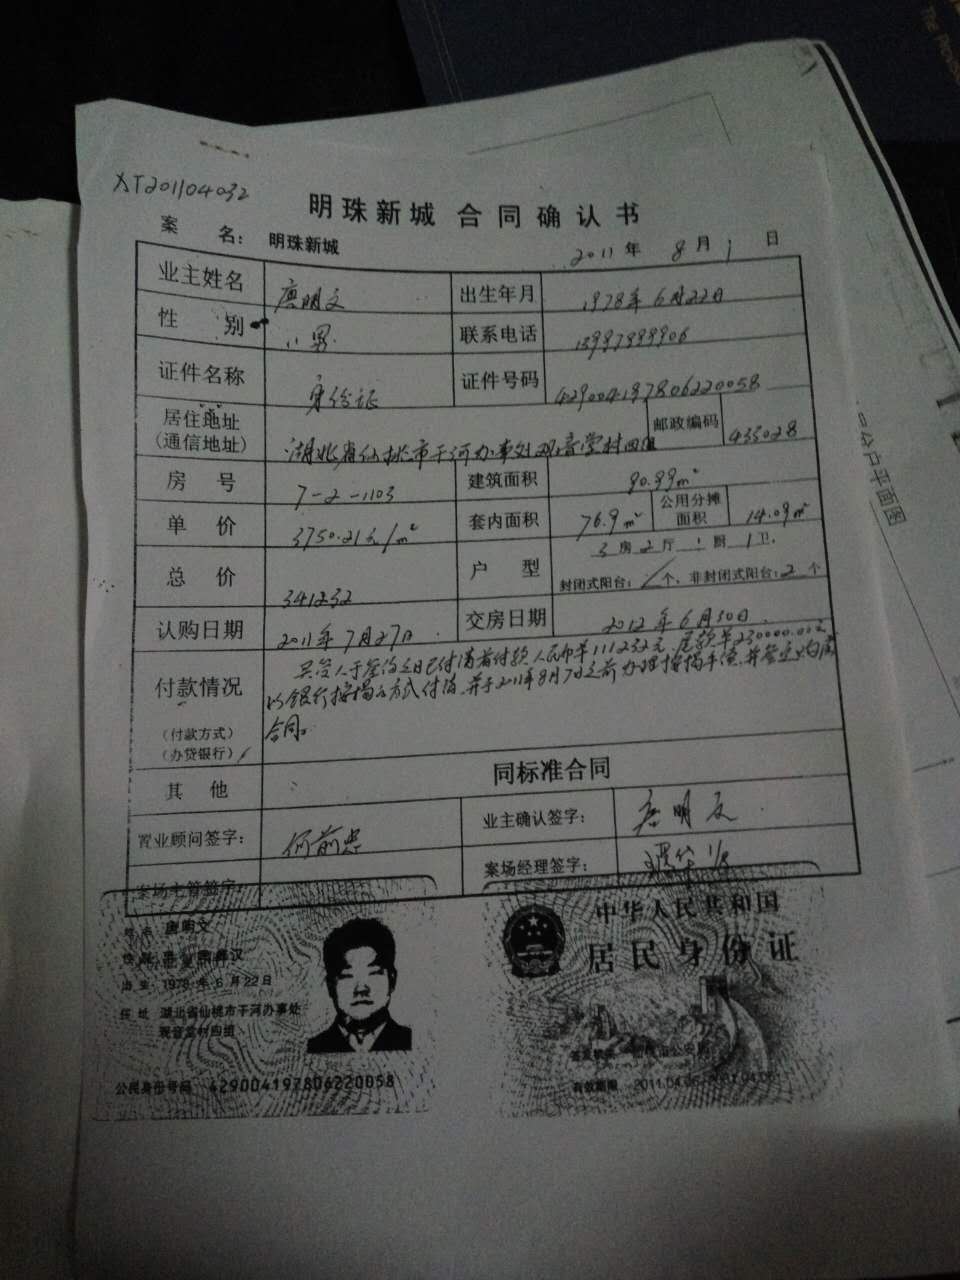 XT201104032
明珠新城 合同确认书
案 名: 明珠新城 2011年 8月 1日
业主姓名 唐明文 出生年月 1978年6月22日
性 别 男 联系电话 13997999906
证件名称 身份证 证件号码 429004197806220058
居住地址 (通信地址) 湖北省仙桃市干河办事处观音堂村四组 邮政编码 433028
房 号 7-2-1103 建筑面积 90.99㎡
单 价 3750.21元/㎡ 套内面积 76.9㎡ 公用分摊面积 14.09㎡
总 价 341232 户 型 3房2厅1厨1卫.
封闭式阳台:/个、非封闭式阳台:2个
认购日期 2011年7月27日 交房日期 2012年6月30日.
付款情况 买受人于签约之日已付清首付款人民币¥111232元.尾款¥230000.00元
以银行按揭的方式付清.并于2011年8月7日之前办理按揭手续,并签
合同。
(付款方式)
(办贷银行)
其 他 同标准合同
置业顾问签字: 何前忠 业主确认签字: 唐明文
案场主管签字: 案场经理签字:
姓名 唐明文
民族汉
出生 1978年6月22日
住址 湖北省仙桃市干河办事处
观音堂村四组
公民身份号码 429004197806220058
中华人民共和国
居民身份证
签发机关 公安局
有效期限 2011.04.06-
公分户平面图